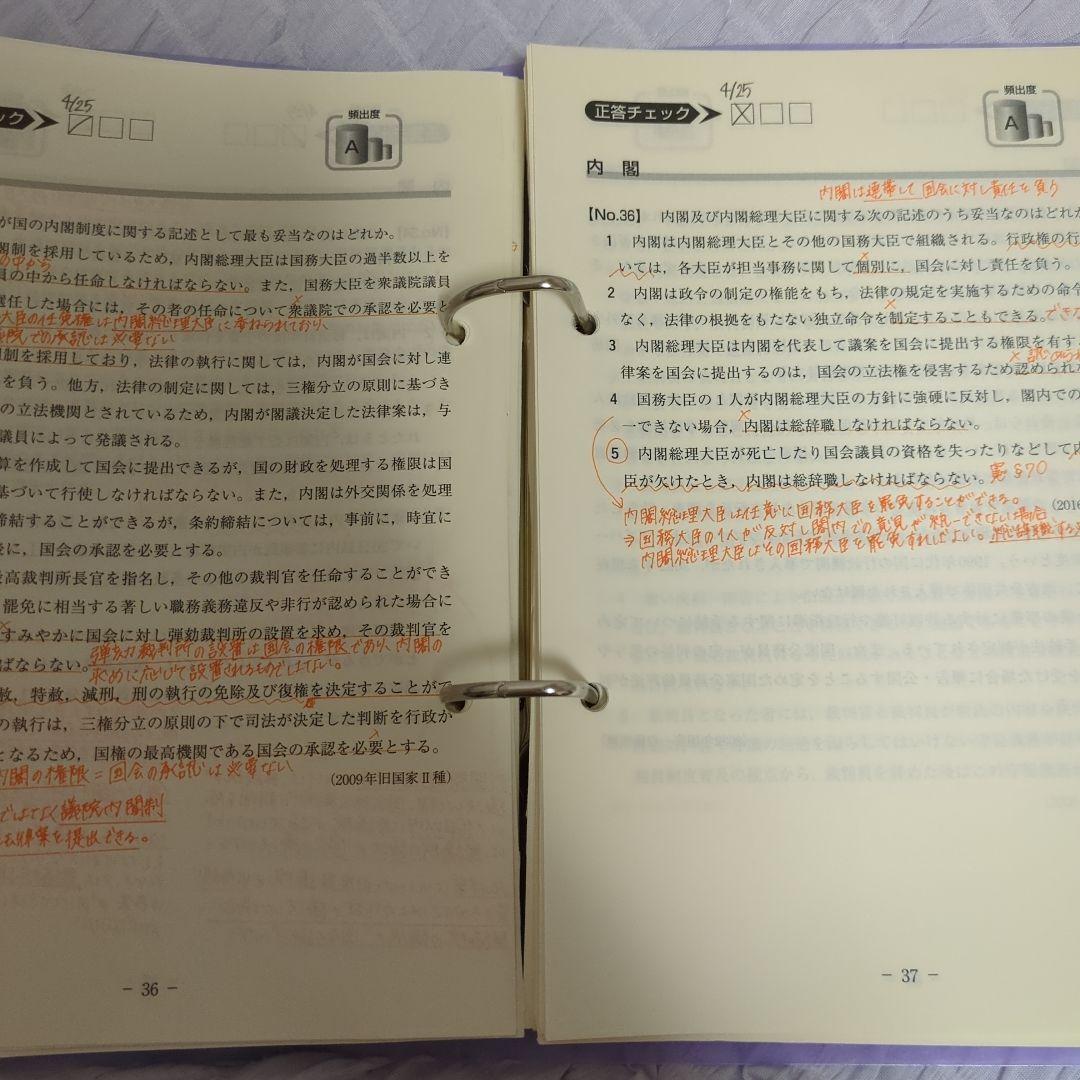 ック
4/25
頻出度
A
が国の内閣制度に関する記述として最も妥当なのはどれか。
閣制を採用しているため，内閣総理大臣は国務大臣の過半数以上を
の中から
員の中から任命しなければならない。また，国務大臣を衆議院議員
選任した場合には，その者の任命について衆議院での承認を必要と
大臣の任免権は内閣総理大臣に委ねられており，
院での承認は必要ない
制を採用しており，法律の執行に関しては，内閣が国会に対し連
を負う。他方，法律の制定に関しては，三権分立の原則に基づき
の立法機関とされているため，内閣が閣議決定した法律案は，与
議員によって発議される。
算を作成して国会に提出できるが，国の財政を処理する権限は国
基づいて行使しなければならない。また，内閣は外交関係を処理
締結することができるが，条約締結については，事前に，時宜に
後に，国会の承認を必要とする。
最高裁判所長官を指名し，その他の裁判官を任命することができ
罷免に相当する著しい職務義務違反や非行が認められた場合に
すみやかに国会に対し弾劾裁判所の設置を求め，その裁判官を
ばならない。弾劾裁判所の設置は国会の権限であり，内閣の
求めに応じて設置されるものではない。
赦，特赦，減刑，刑の執行の免除及び復権を決定することがで
の執行は，三権分立の原則の下で司法が決定した判断を行政が
となるため，国権の最高機関である国会の承認を必要とする。
内閣の権限＝国会の承認は必要ない
(2009年旧国家Ⅱ種)
ではなく議院内閣制
法律案を提出できる。
－ 36 －
正答チェック
4/25
頻出度
A
内 閣
内閣は連帯して国会に対し責任を負う
【No.36】 内閣及び内閣総理大臣に関する次の記述のうち妥当なのはどれか
1 内閣は内閣総理大臣とその他の国務大臣で組織される。行政権の行
いては，各大臣が担当事務に関して個別に，国会に対し責任を負う。
2 内閣は政令の制定の権能をもち，法律の規定を実施するための命令
なく，法律の根拠をもたない独立命令を制定することもできる。でき
3 内閣総理大臣は内閣を代表して議案を国会に提出する権限を有す
律案を国会に提出するのは，国会の立法権を侵害するため認められ
4 国務大臣の1人が内閣総理大臣の方針に強硬に反対し，閣内での
一できない場合，内閣は総辞職しなければならない。
5 内閣総理大臣が死亡したり国会議員の資格を失ったりなどして
臣が欠けたとき，内閣は総辞職しなければならない。憲§70
(2016
内閣総理大臣は任意に国務大臣を罷免することができる。
⇒国務大臣の1人が反対し閣内での意見が統一できない場合
内閣総理大臣はその国務大臣を罷免すればよい。総辞職する
－ 37 －